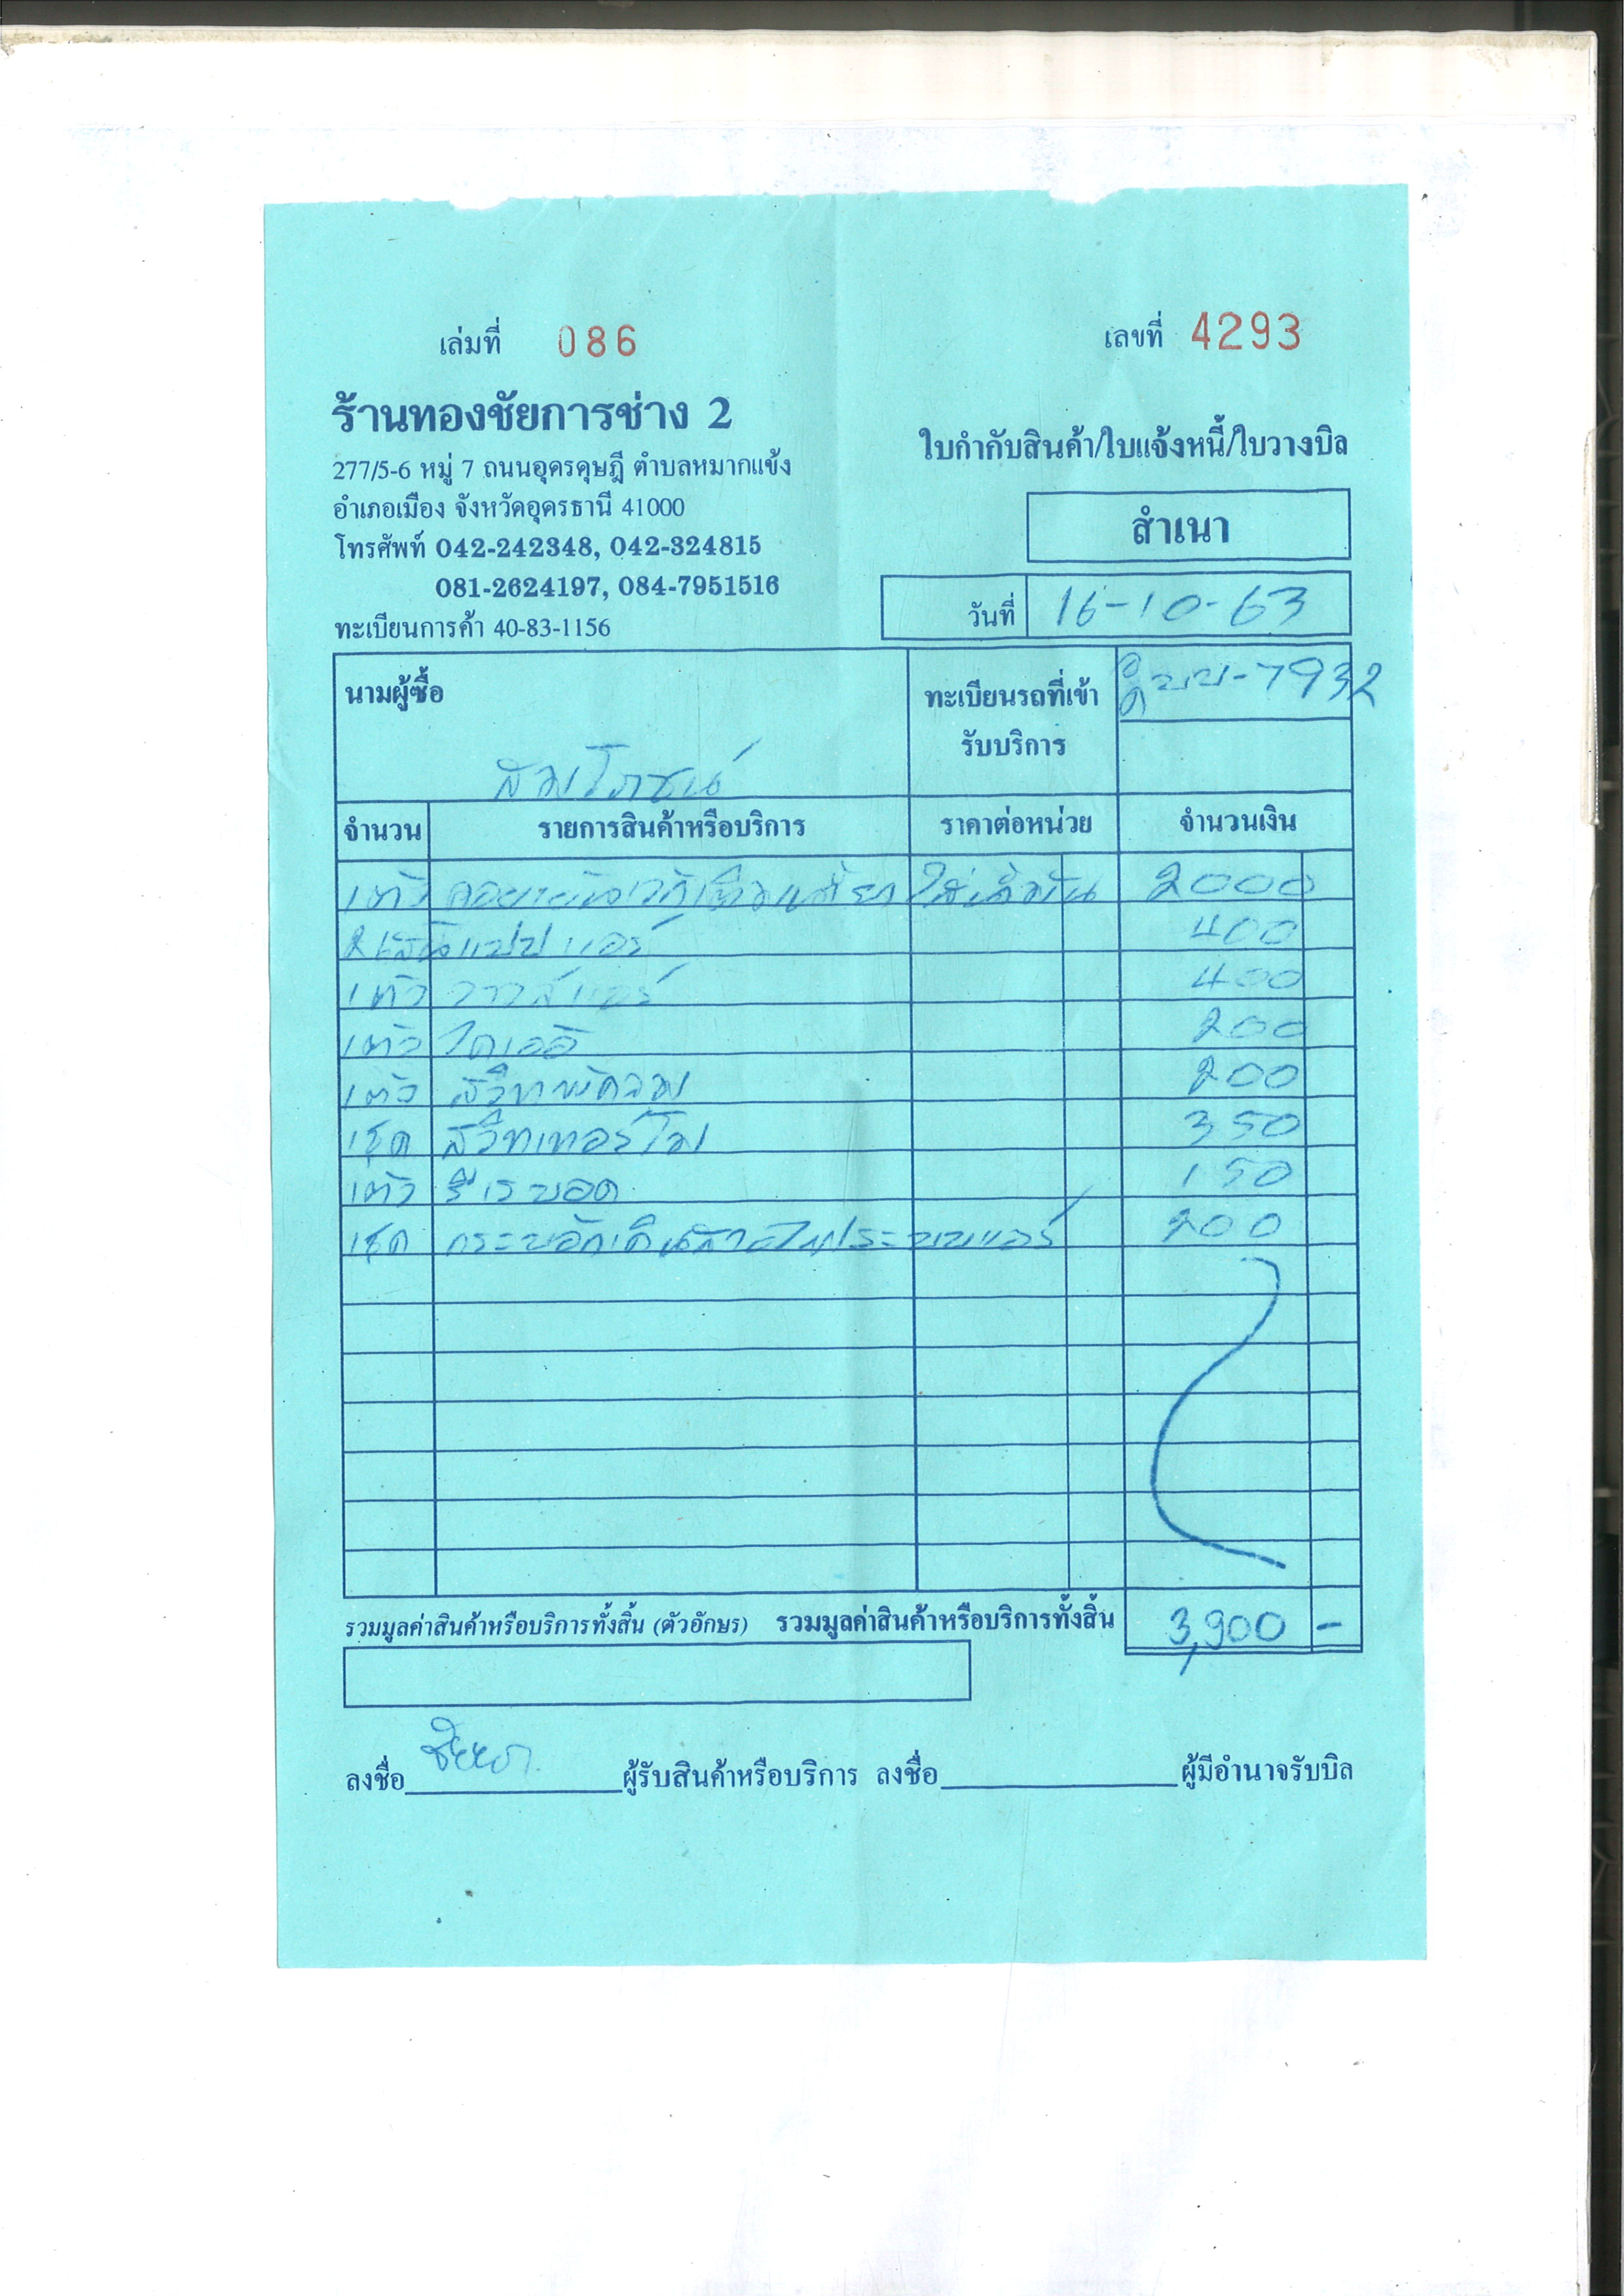 เล่มที่ 086 เลขที่ 4293
ร้านทองชัยการช่าง 2
ใบกำกับสินค้า/ใบแจ้งหนี้/ใบวางบิล
277/5-6 หมู่ 7 ถนนอุดรดุษฎี ตำบลหมากแข้ง
อำเภอเมือง จังหวัดอุดรธานี 41000
สำเนา
โทรศัพท์ 042-242348, 042-324815
081-2624197, 084-7951516
วันที่ 16-10-63
ทะเบียนการค้า 40-83-1156
นามผู้ซื้อ ทะเบียนรถที่เข้า บบ-7932
รับบริการ
สัมโภชน์
จำนวน รายการสินค้าหรือบริการ ราคาต่อหน่วย จำนวนเงิน
1 ตัว 2000
2 เส้น แป๊ป แอร์ 400
1 ตัว วาวล์แอร์ 400
1 ตัว ไดเออ 200
1 ตัว สวิทพัดลม 200
1 ชุด สวิทเทอร์โม 350
1 ตัว รีเรบอด 150
1 ชุด ระบบแอร์ 200
รวมมูลค่าสินค้าหรือบริการทั้งสิ้น (ตัวอักษร) รวมมูลค่าสินค้าหรือบริการทั้งสิ้น 3,900 -
ลงชื่อ ผู้รับสินค้าหรือบริการ ลงชื่อ ผู้มีอำนาจรับบิล